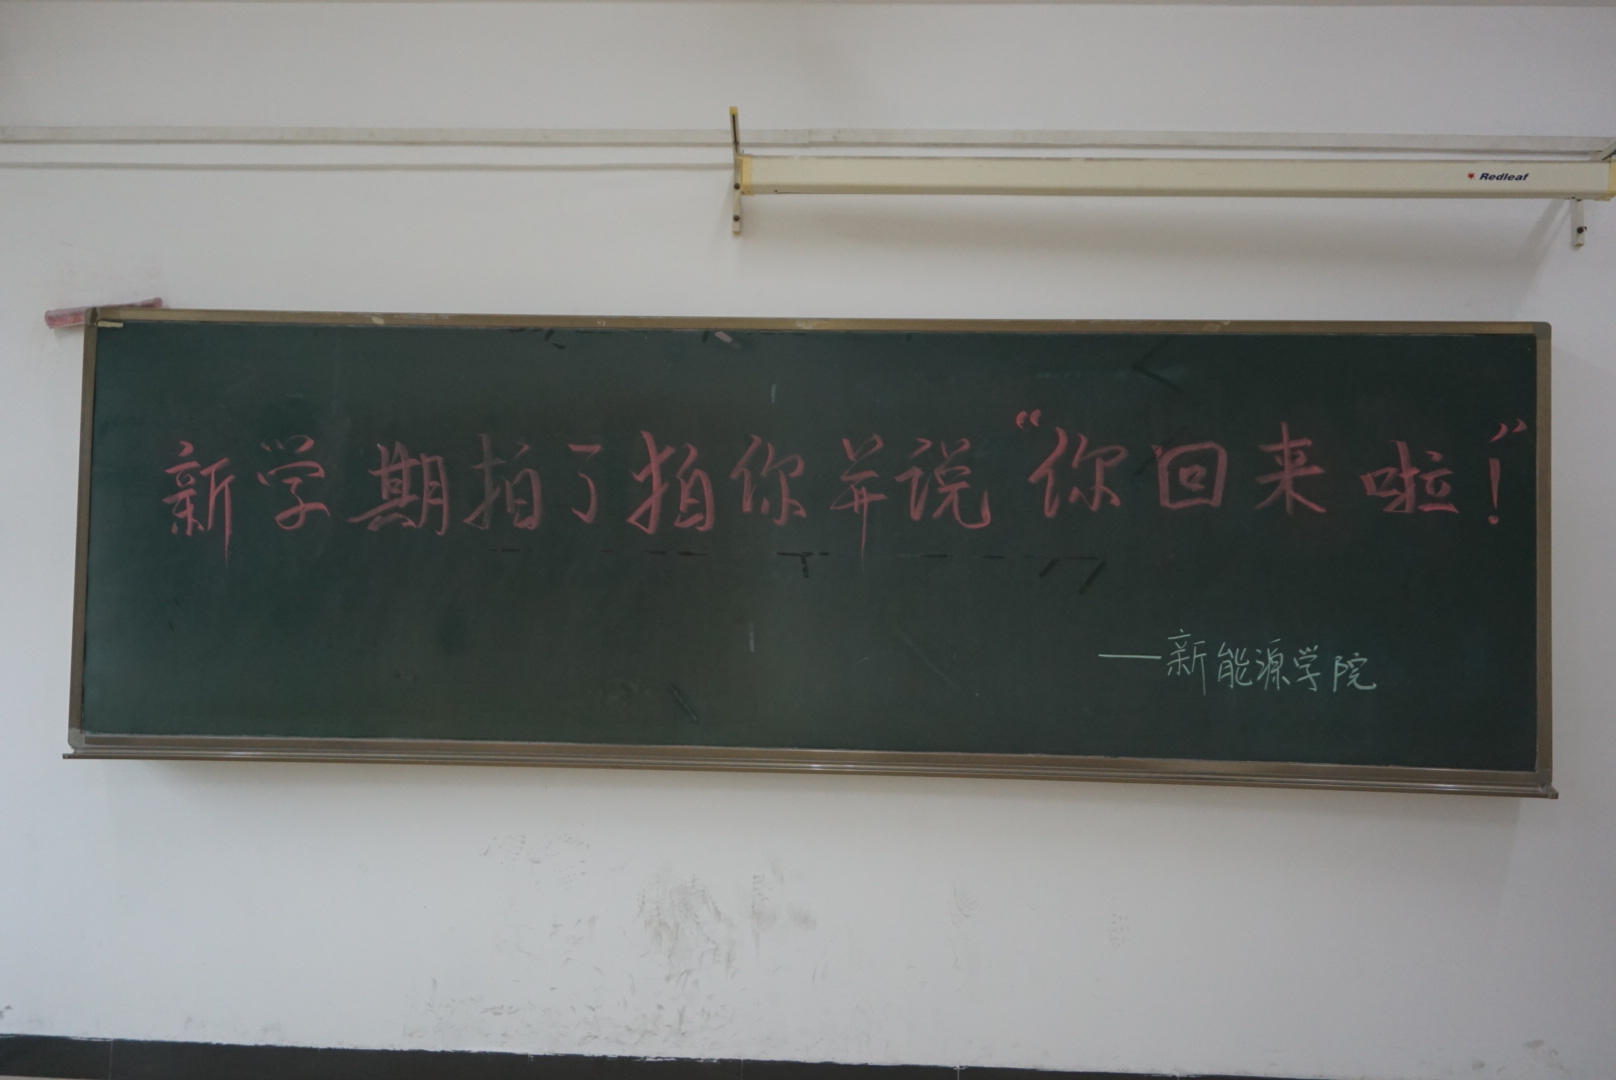 Redleaf
新学期拍了拍你并说“你回来啦！”
—新能源学院